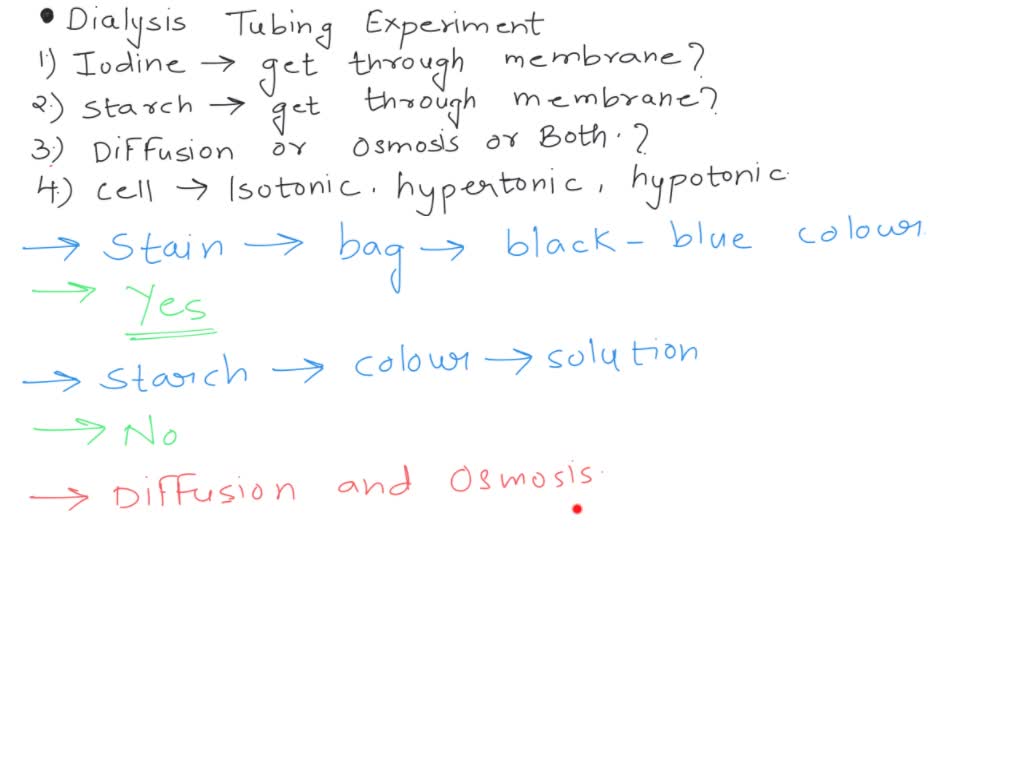 • Dialysis Tubing Experiment
1.) Iodine → get through membrane?
2.) Starch → get through membrane?
3.) Diffusion or Osmosis or Both.?
4.) cell → Isotonic, hypertonic, hypotonic.
→ Stain → bag → black - blue colour.
→ Yes
→ Starch → colour → solution
→ No
→ Diffusion and Osmosis.